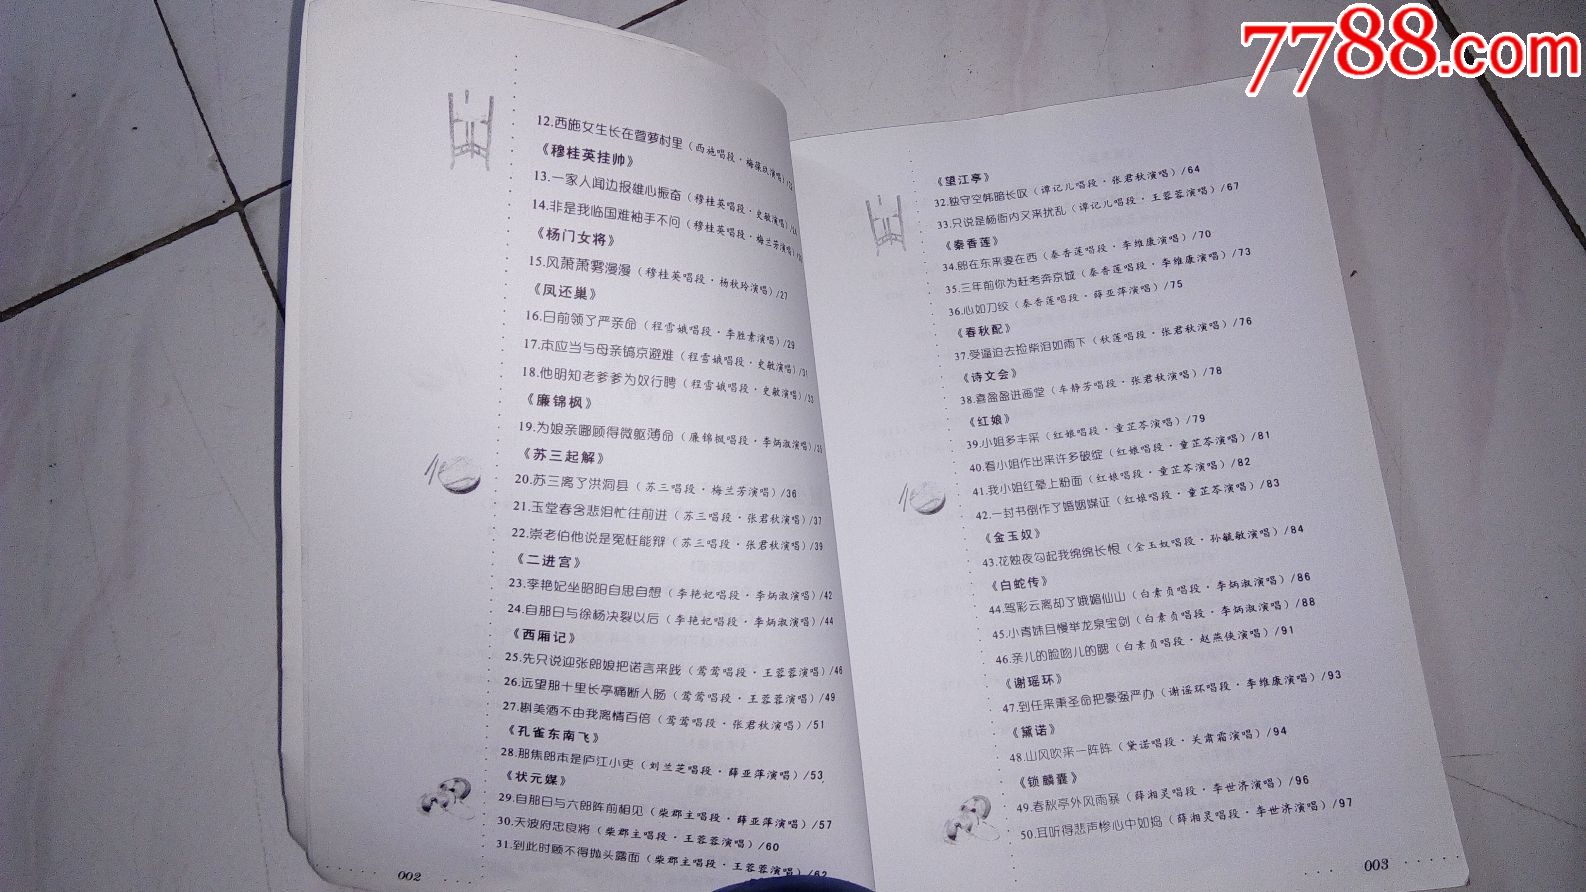 7788.com
12.西施女生长在苧萝村里（西施唱段·梅葆玖演唱）
《穆桂英挂帅》
13.一家人闻边报雄心振奋（穆桂英唱段·史敏演唱）
14.非是我临国难袖手不问（穆桂英唱段·梅兰芳演唱）
《杨门女将》
15.风萧萧雾漫漫（穆桂英唱段·杨秋玲演唱）/27
《凤还巢》
16.日前领了严亲命（程雪娥唱段·李胜素演唱）/29
17.本应当与母亲镐京避难（程雪娥唱段·史敏演唱）/31
18.他明知老爹爹为奴行聘（程雪娥唱段·史敏演唱）/33
《廉锦枫》
19.为娘亲哪顾得微躯薄命（廉锦枫唱段·李炳淑演唱）/35
《苏三起解》
20.苏三离了洪洞县（苏三唱段·梅兰芳演唱）/36
21.玉堂春含悲泪忙往前进（苏三唱段·张君秋演唱）/37
22.崇老伯他说是冤枉能辩（苏三唱段·张君秋演唱）/39
《二进宫》
23.李艳妃坐昭阳自思自想（李艳妃唱段·李炳淑演唱）/42
24.自那日与徐杨决裂以后（李艳妃唱段·李炳淑演唱）/44
《西厢记》
25.先只说迎张郎娘把诺言来践（莺莺唱段·王蓉蓉演唱）/46
26.远望那十里长亭痛断人肠（莺莺唱段·王蓉蓉演唱）/49
27.斟美酒不由我离情百倍（莺莺唱段·张君秋演唱）/51
《孔雀东南飞》
28.那焦郎本是庐江小吏（刘兰芝唱段·薛亚萍演唱）/53
《状元媒》
29.自那日与六郎阵前相见（柴郡主唱段·薛亚萍演唱）/57
30.天波府忠良将（柴郡主唱段·王蓉蓉演唱）/60
31.到此时顾不得抛头露面（柴郡主唱段·王蓉蓉演唱）/62
002
《望江亭》
32.独守空帏暗长叹（谭记儿唱段·张君秋演唱）/64
33.只说是杨衙内又来扰乱（谭记儿唱段·王蓉蓉演唱）/67
《秦香莲》
34.郎在东来妻在西（秦香莲唱段·李维康演唱）/70
35.三年前你为赶考奔京城（秦香莲唱段·李维康演唱）/73
36.心如刀绞（秦香莲唱段·薛亚萍演唱）/75
《春秋配》
37.受逼迫去捡柴泪如雨下（秋莲唱段·张君秋演唱）/76
《诗文会》
38.喜盈盈进画堂（车静芳唱段·张君秋演唱）/78
《红娘》
39.小姐多丰采（红娘唱段·童芷苓演唱）/79
40.看小姐作出来许多破绽（红娘唱段·童芷苓演唱）/81
41.我小姐红晕上粉面（红娘唱段·童芷苓演唱）/82
42.一封书倒作了婚姻媒证（红娘唱段·童芷苓演唱）/83
《金玉奴》
43.花烛夜勾起我绵绵长恨（金玉奴唱段·孙毓敏演唱）/84
《白蛇传》
44.驾彩云离却了峨嵋仙山（白素贞唱段·李炳淑演唱）/86
45.小青妹且慢举龙泉宝剑（白素贞唱段·李炳淑演唱）/88
46.亲儿的脸吻儿的腮（白素贞唱段·赵燕侠演唱）/91
《谢瑶环》
47.到任来秉圣命把豪强严办（谢瑶环唱段·李维康演唱）/93
《黛诺》
48.山风吹来一阵阵（黛诺唱段·关肃霜演唱）/94
《锁麟囊》
49.春秋亭外风雨暴（薛湘灵唱段·李世济演唱）/96
50.耳听得悲声惨心中如捣（薛湘灵唱段·李世济演唱）/97
003